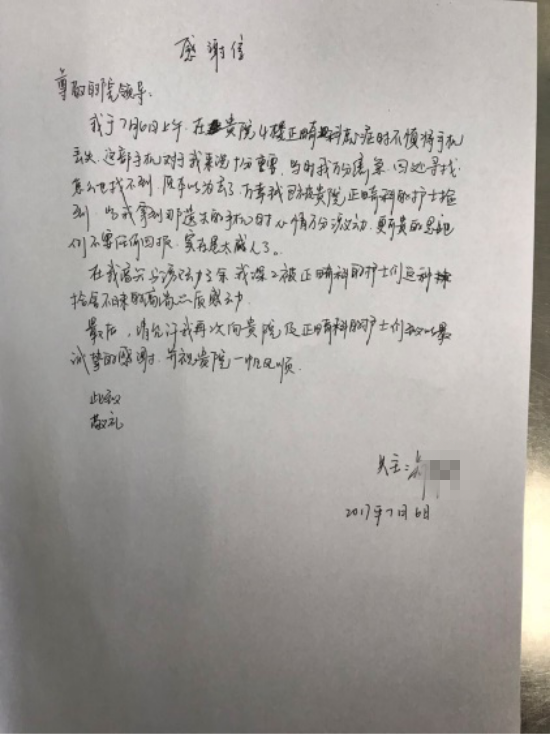 感谢信
尊敬的院领导:
我于7月6日上午.在贵院4楼正畸科就诊时不慎将手机
丢失.这部手机对于我来说十分重要,当时我万分焦急.四处寻找
怎么也找不到.原本以为丢了.万幸我已被贵院正畸科的护士捡
到.当我拿到那遗失的手机时心情万分激动.更可贵的是她
们不需任何回报.实在是太感人了。
在我高兴与激动之余.我深深被正畸科的护士们这种
拾金不昧的高尚品质感动.
最后,请允许我再次向贵院及正畸科的护士们致以最
诚挚的感谢.并祝贵院一切顺.
此致
敬礼
失主:
2017年7月6日